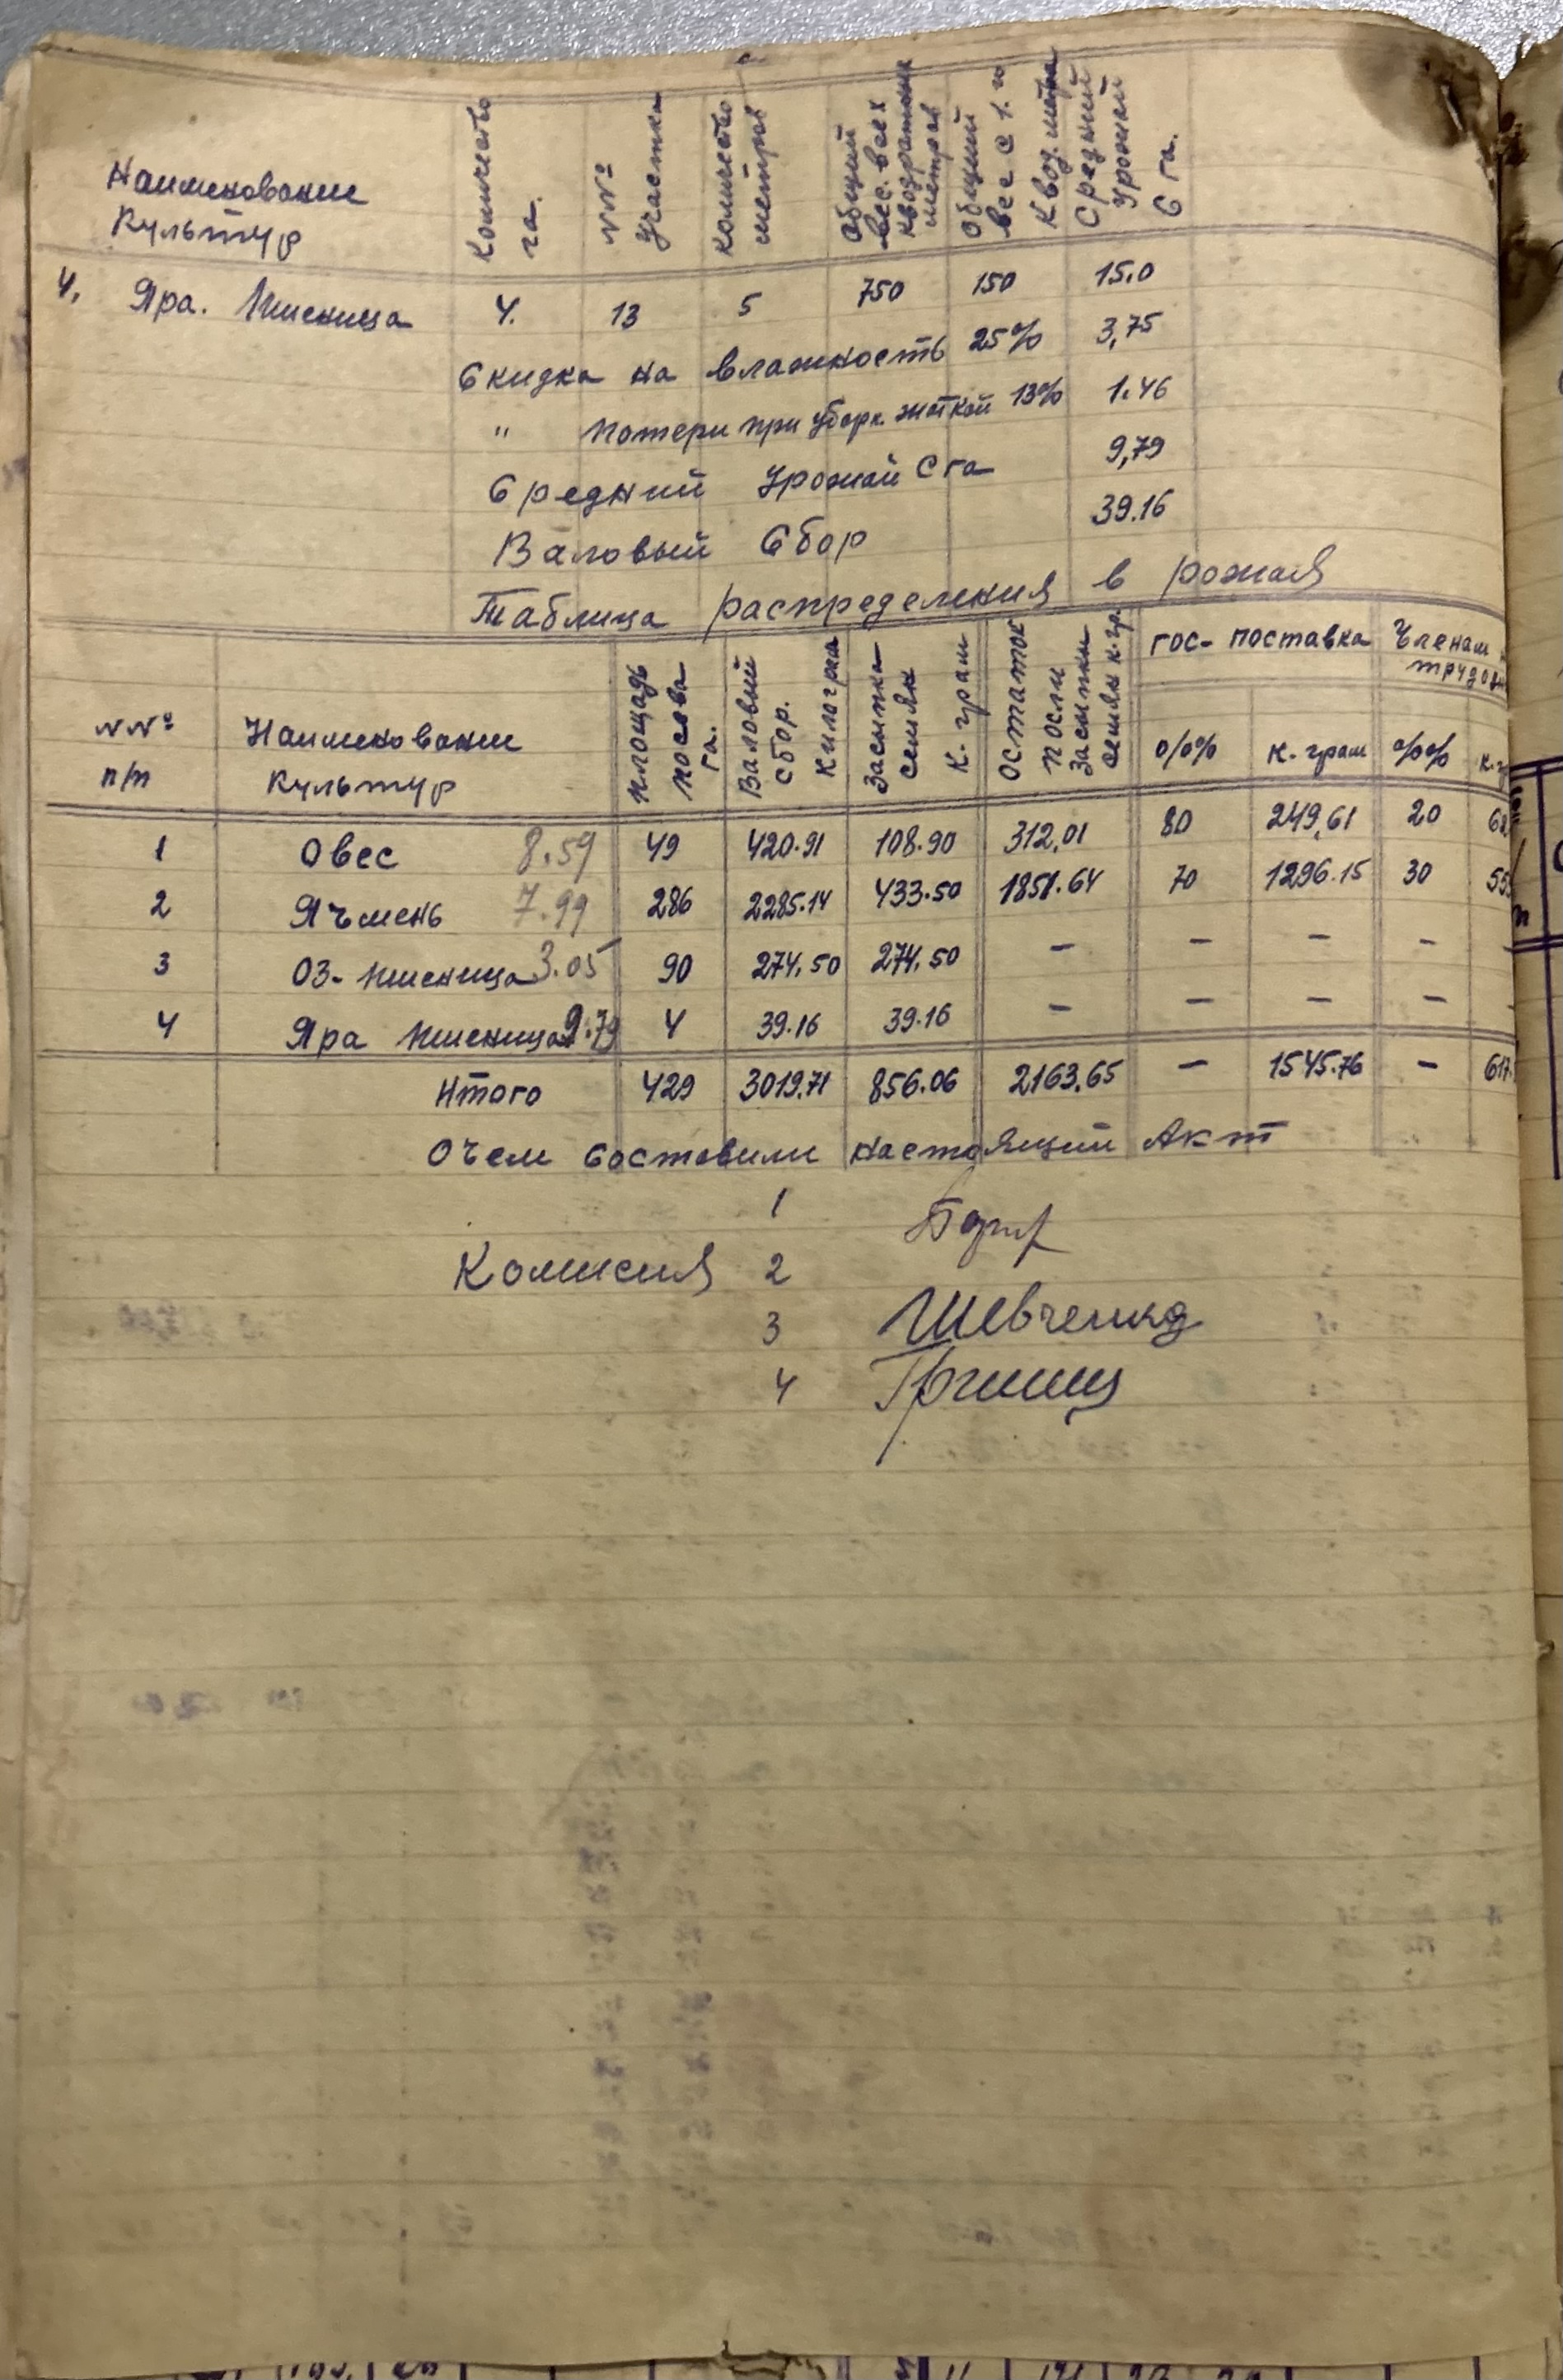 Наименование Культур | Количество га. | №№ Участка | количество метров | Общий вес. всех квадратных метров | Общий вес с 1. го Квод. метра | Средний Урожай с га.
4. Яра. Пшеница 4. 13 5 750 150 15.0
Скидка на влажность 25% 3,75
" Потери при уборк. жаткой 13% 1.46
Средний Урожай с га 9,79
Валовый Сбор 39.16
Таблица распределения в рожая
№№ п/п | Наименование Культур | площадь посева га. | Валовый сбор. килограм | Засыпка семян к. грам | Остаток посли засыпки семян к.гр. | гос- поставка | Членам трудов
0/0% | к. грам | %% | к.г
1 Овес 8.59 49 420.91 108.90 312,01 80 249,61 20
2 Ячмень 7.99 286 2285.14 433.50 1851.64 70 1296.15 30
3 ОЗ- пшеница 3.05 90 274.50 274.50 — — — —
4 Яра пшеница 9.79 4 39.16 39.16 — — — — -
Итого 429 3019.71 856.06 2163.65 — 1545.76 — 617.
Очем составили настоящий Акт
1
Комисия 2
3 Шевченко
4